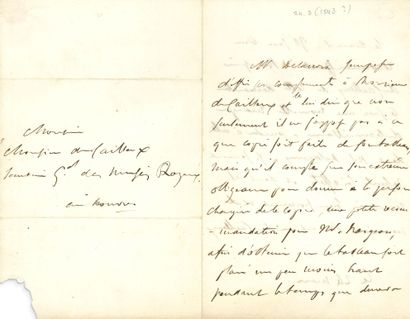 Monsieur
Monsieur de Cailleux
Secrétaire Gal des Musées Royaux
au Louvre.
Mr Delacroix
compliments à Monsieur
de Cailleux et lui dire que non
seulement il ne s'oppose pas à ce
que copie soit faite de son tableau
mais qu'il compte sur son extrême
obligeance pour donner à la personne
chargée de la copie une petite recom
-mandation pour Mr.
afin d'obtenir que le tableau soit
placé un peu moins haut
pendant le temps que durera